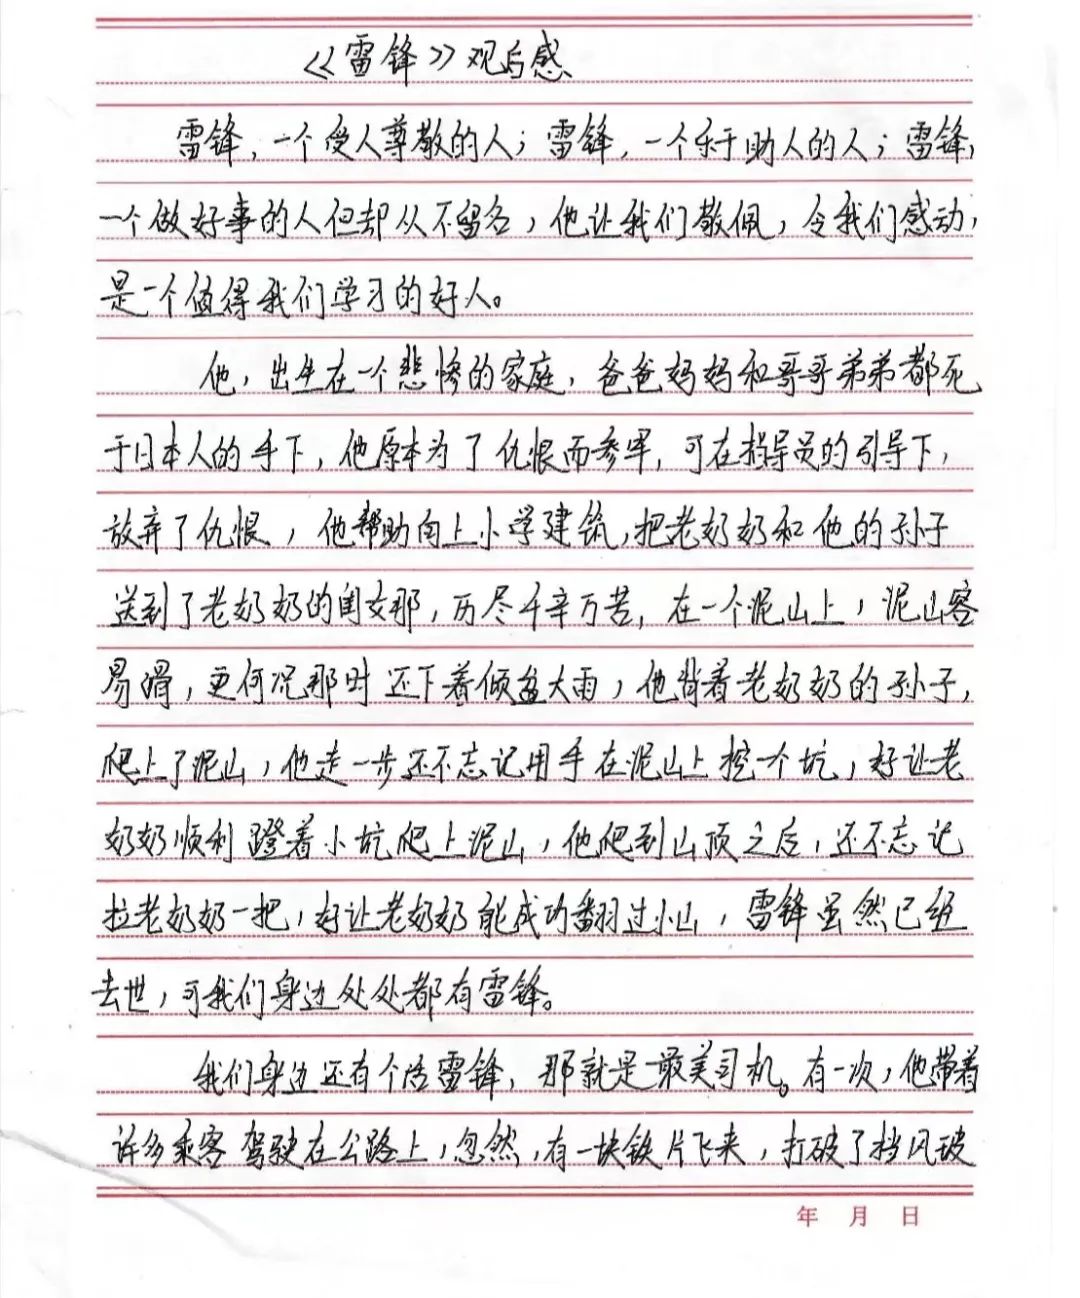 《雷锋》观后感
雷锋，一个受人尊敬的人；雷锋，一个乐于助人的人；雷锋，
一个做好事的人但却从不留名，他让我们敬佩，令我们感动，
是一个值得我们学习的好人。
他，出生在一个悲惨的家庭，爸爸妈妈和哥哥弟弟都死
于日本人的手下，他原本为了仇恨而参军，可在指导员的引导下，
放弃了仇恨，他帮助向上小学建筑，把老奶奶和他的孙子
送到了老奶奶的闺女那，历尽千辛万苦，在一个泥山上，泥山容
易滑，更何况那时还下着倾盆大雨，他背着老奶奶的孙子，
爬上了泥山，他走一步还不忘记用手在泥山上挖个坑，好让老
奶奶顺利蹬着小坑爬上泥山，他爬到山顶之后，还不忘记
拉老奶奶一把，好让老奶奶能成功翻过小山，雷锋虽然已经
去世，可我们身边处处都有雷锋。
我们身边还有个活雷锋，那就是最美司机。有一次，他带着
许多乘客驾驶在公路上，忽然，有一块铁片飞来，打破了挡风玻
年 月 日